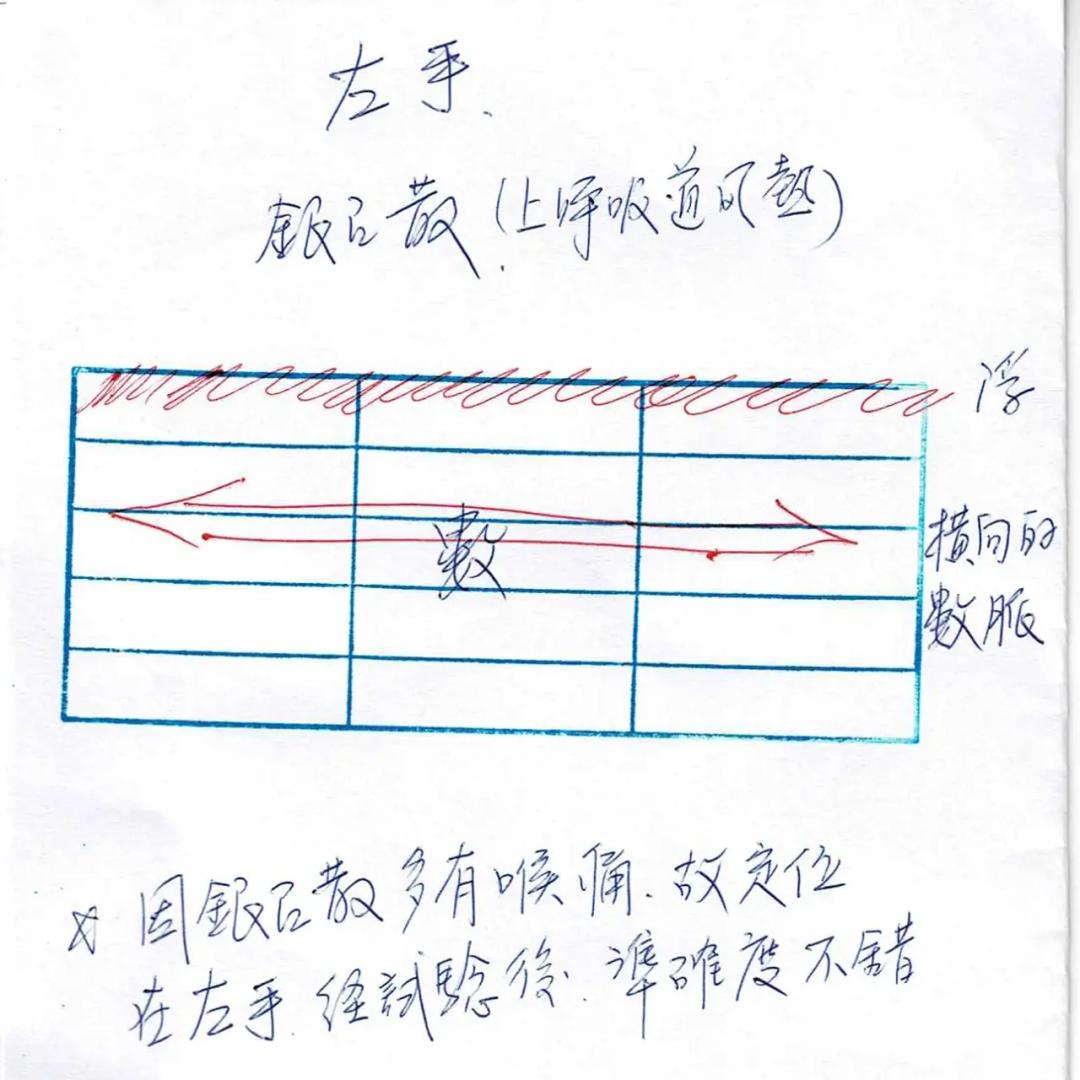 左手、
銀口散 (上呼吸道风熱)
浮
數
横向的
數脈
因銀口散多有喉痛、故定位
在左手、経試驗後、準確度不錯